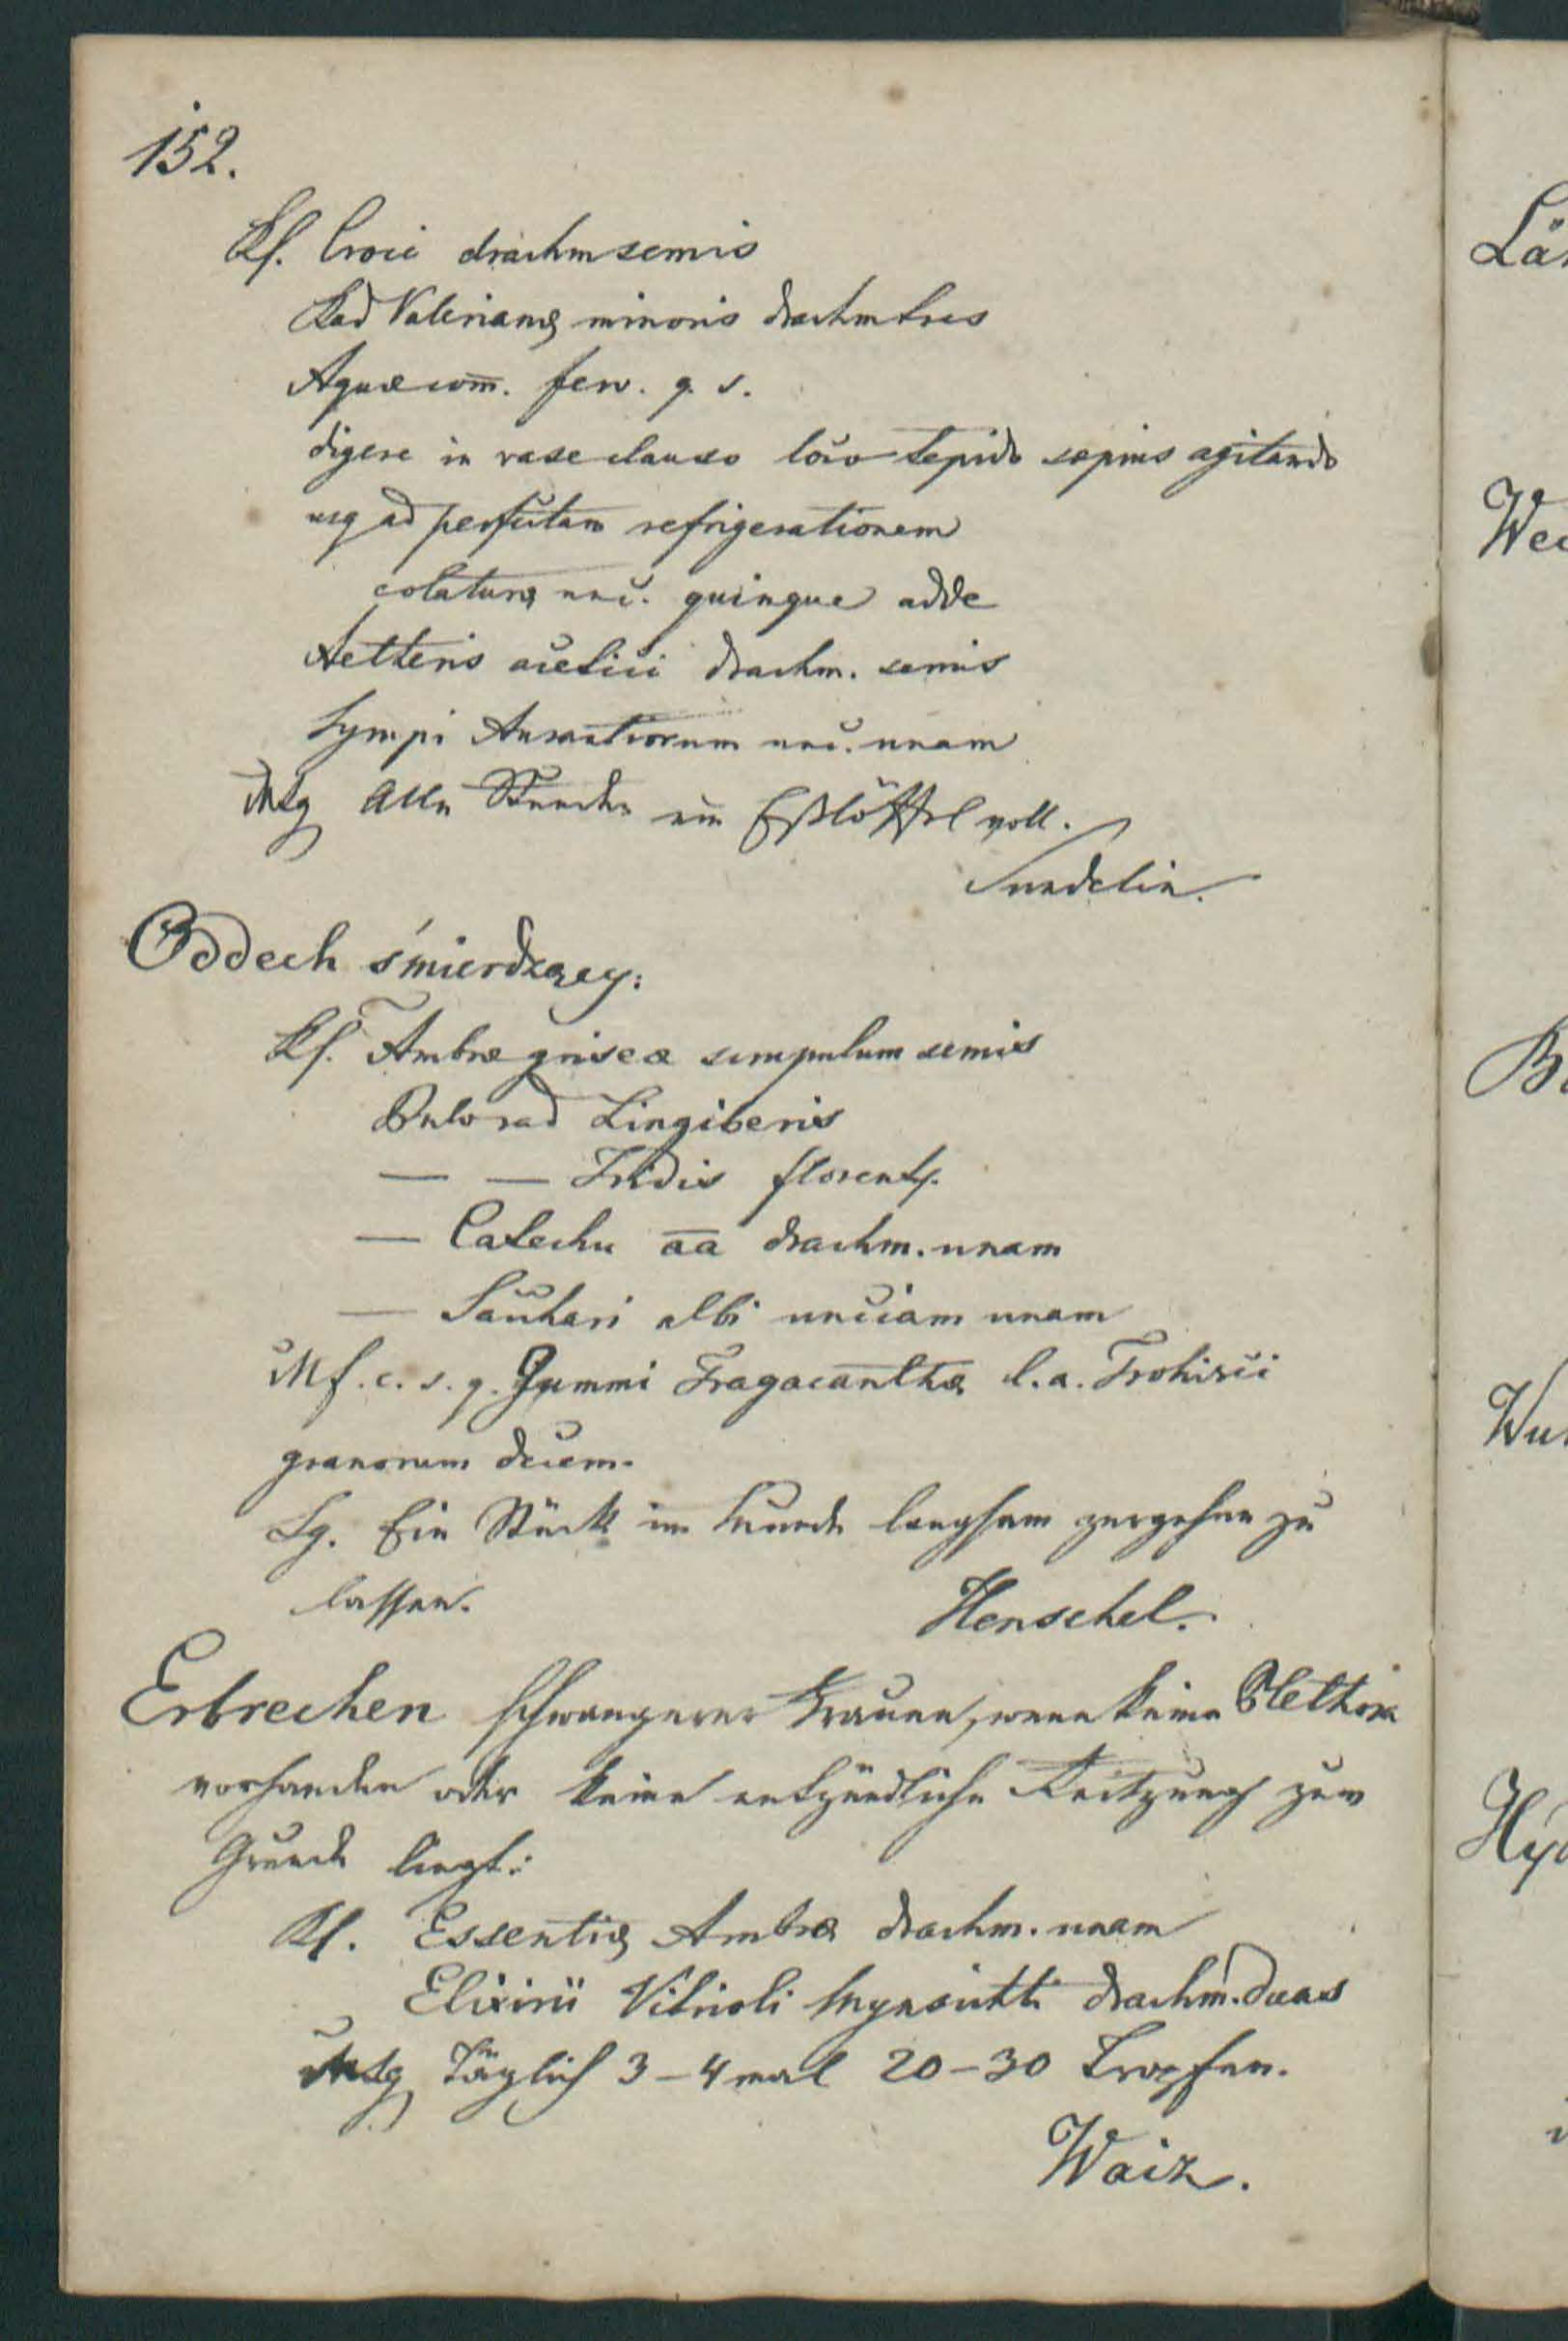 152.
Rf. Croci drachm semis
Rad Valerianæ minoris drachm tres
Aquæ com̅. ferv. q. s.
digere in vase clauso loco tepido sæpius agitando
usq ad perfectam refrigerationem
colaturæ unc. quinque adde
Aetheris acetici drachm. semis
Syrupi Aurantiorum unc. unam
MSg Alle Stunden ein Eßlöffel voll.
Sundelin.
Oddech śmierdzący:
Rf. Ambræ griseæ scrupulum semis
Pulv rad Zingiberis
— — Iridis florent.
— Catechu a̅a̅ drachm. unam
— Sacchari albi unciam unam
Mf. c. s. q. Gummi Tragacanthæ l. a. Trohisci
granorum decem.
Sg. Ein Stück im Munde langsam zergehen zu
lassen.
Henschel.
Erbrechen schwangerer Frauen, wenn keine Plethora
vorhanden oder keine entzündliche Reitzung zum
Grunde liegt:
Rf. Essentiæ Ambræ drachm. unam
Elixirii Vitrioli Mynsichti drachm. duas
MSg Täglich 3–4 mal 20–30 Tropfen.
Waiz.
Lä
We
B
Wu
Hy